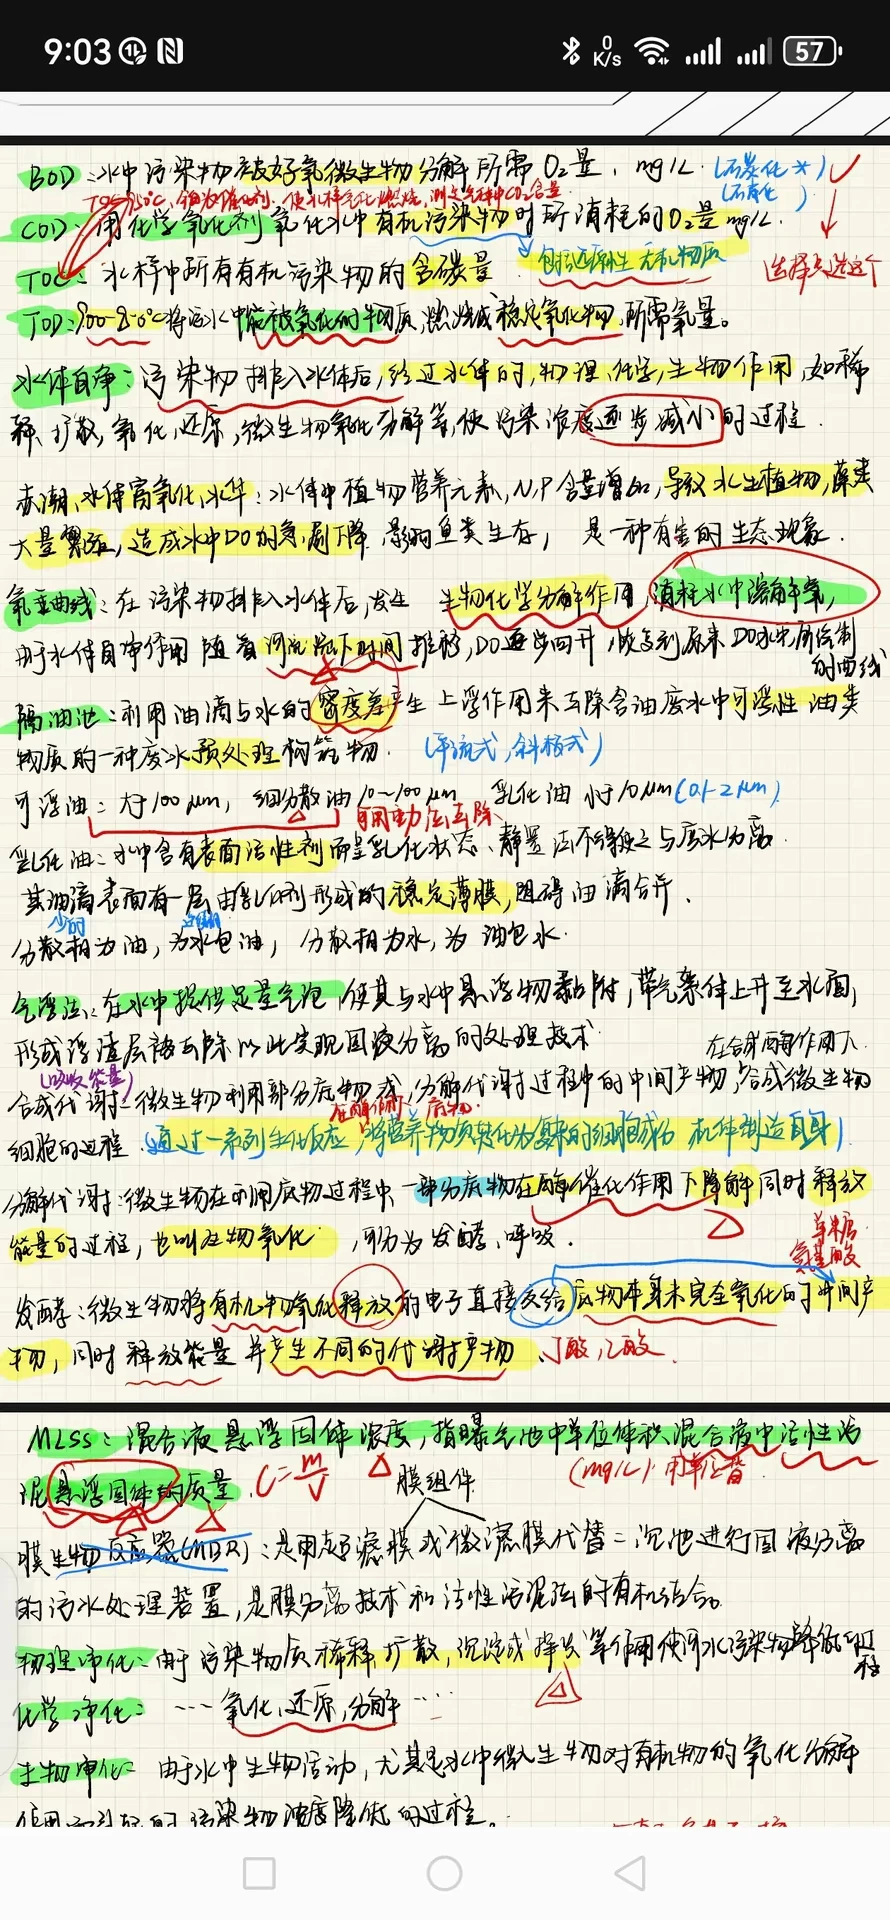 9:03
0 K/s
57
BOD:水中污染物被好氧微生物分解所需O₂量,mg/L.(石炭化*)
(石肖化)
750℃,铂为催化剂,使水样气化燃烧,测定气体中CO₂含量.
COD:用化学氧化剂氧化水中有机污染物时所消耗的O₂量mg/L.
TOC:水样中所有有机污染物的含碳量 包括还原性无机物质
选择题选这个
TOD:900-950℃将污水中能被氧化的物质,燃烧成稳定氧化物,所需氧量。
水体自净:污染物排入水体后,经过水体的,物理,化学,生物作用,如稀
释,扩散,氧化,还原,微生物氧化分解等,使污染浓度逐步减小的过程.
赤潮,水体富氧化,水华:水体中植物营养元素,N,P含量增加,导致水生植物,藻类
大量繁殖,造成水中DO的急剧下降,影响鱼类生存,是一种有害的生态现象.
氧垂曲线:在污染物排入水体后,发生 生物化学分解作用,消耗水中溶解氧,
由于水体自净作用随着河流流下时间推移,DO逐步回升,恢复到原来DO水平所绘制
的曲线
隔油池:利用油滴与水的密度差产生上浮作用来去除含油废水中可浮性油类
物质的一种废水预处理构筑物. (平流式,斜板式)
可浮油:大于100μm, 细分散油10~100μm 乳化油 小于10μm(0.1-2μm)
可用重力法去除
乳化油:水中含有表面活性剂而呈乳化状态、静置法不能使之与废水分离.
其油滴表面有一层由乳化剂形成的稳定薄膜,阻碍油滴合并.
少的
分散相为油,为水包油, 分散相为水,为油包水.
气浮法:在水中提供足量气泡,使其与水中悬浮物黏附,带气絮体上升至水面,
形成浮渣层被去除以此实现固液分离的处理技术. 在合成酶作用下.
(吸收能量)
合成代谢:微生物利用部分底物或,分解代谢过程中的中间产物,合成微生物
细胞的过程.(通过一系列生化反应,将营养物质转化为复杂的细胞成份 机体制造自身)
分解代谢:微生物在利用底物过程中 一部分底物在酶催化作用下降解同时释放
能量的过程,也叫生物氧化. ,可分为发酵、呼吸.
单糖
氨基酸
发酵:微生物将有机物氧化释放的电子直接交给底物本身未完全氧化的中间产
物,同时释放能量并产生不同的代谢产物 丁酸,乙酸.
MLSS:混合液悬浮固体浓度,指曝气池中单位体积混合液中活性污
泥悬浮固体的质量. C=m/V 膜组件 (mg/L)
膜生物反应器(MBR):是用超滤膜或微滤膜代替二沉池进行固液分离
的污水处理装置,是膜分离技术和活性污泥法的有机结合。
物理净化:由于污染物质稀释扩散,沉淀或挥发等作用使水污染物降低的过
程
化学净化: ··· 氧化,还原,分解 ····
生物净化: 由于水中生物活动,尤其是水中微生物对有机物的氧化分解
作用而引起的污染物浓度降低的过程.